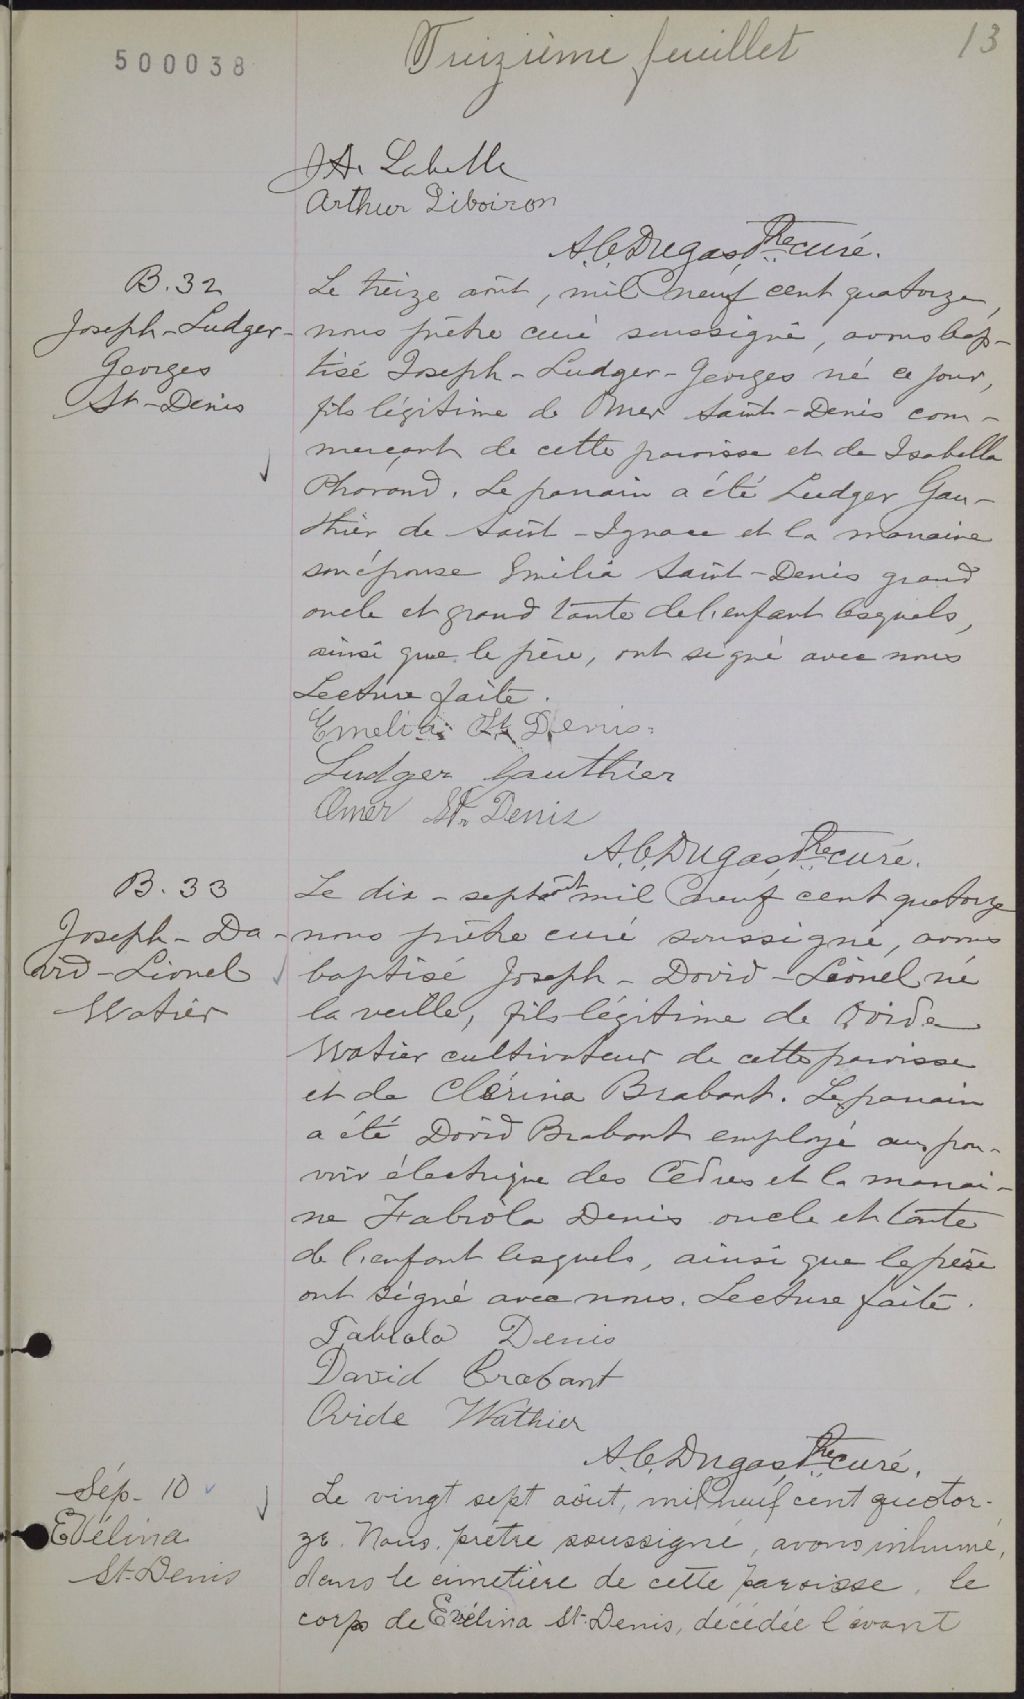 500038
Treizième feuillet
13
J A. Labelle
Arthur Liboiron
A. C. Dugas, Ptre curé.
B. 32
Joseph-Ludger-
Georges
St-Denis
Le treize août, mil neuf cent quatorze,
nous prêtre curé soussigné, avons bap-
tisé Joseph-Ludger-Georges né ce jour,
fils légitime de Omer Saint-Denis com-
merçant de cette paroisse et de Isabella
Pharand. Le parrain a été Ludger Gau-
thier de Saint-Ignace et la marraine
son épouse Emilia Saint-Denis grand
oncle et grand tante de l'enfant lesquels,
ainsi que le père, ont signé avec nous
Lecture faite.
Emelia St Denis.
Ludger Gauthier
Omer St. Denis
A. C. Dugas, Ptre curé.
B. 33
Joseph-Da-
vid-Lionel
Watier
Le dix-sept août mil neuf cent quatorze
nous prêtre curé soussigné, avons
baptisé Joseph-David-Léonel né
la veille, fils légitime de Ovide
Watier cultivateur de cette paroisse
et de Clérina Brabant. Le parrain
a été David Brabant employé au pou-
voir électrique des Cèdres et la marrai-
ne Fabiola Denis oncle et tante
de l'enfant lesquels, ainsi que le père
ont signé avec nous. Lecture faite.
Fabiola Denis
David Brabant
Ovide Wathier
A. C. Dugas, Ptre curé.
Sép. 10
Evélina
St-Denis
Le vingt sept août, mil neuf cent quator-
ze. Nous, prêtre soussigné, avons inhumé,
dans le cimetière de cette paroisse, le
corps de Evélina St-Denis, décédée l'avant